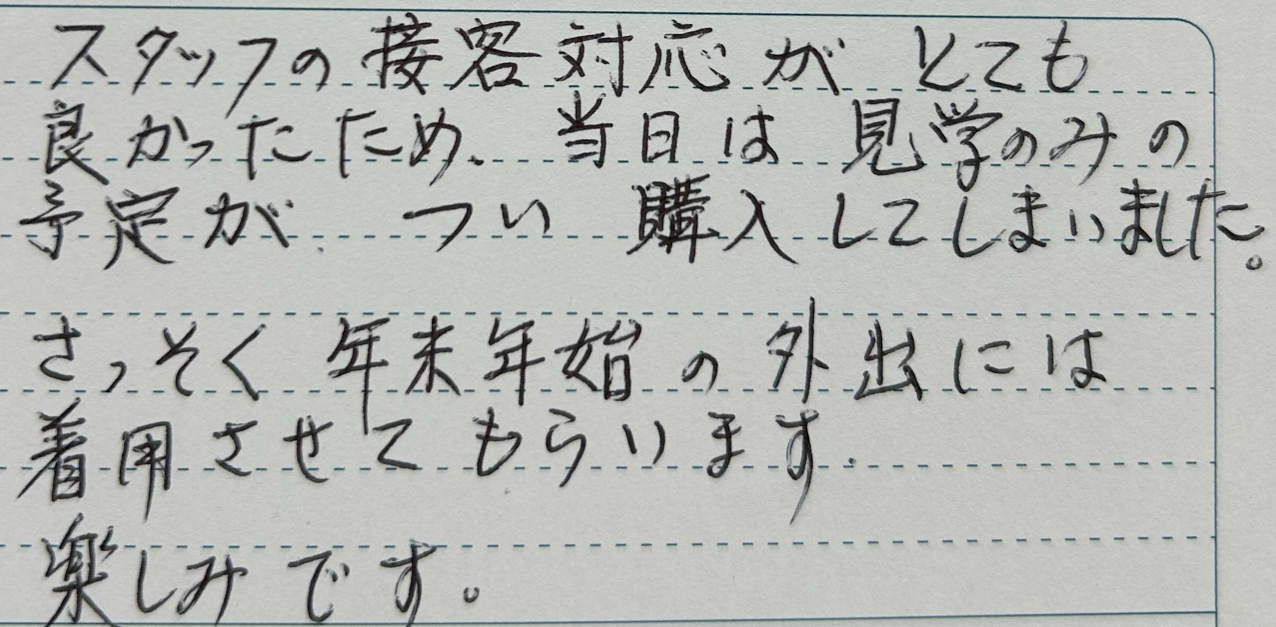 スタッフの接客対応がとても
良かったため、当日は見学のみの
予定が、つい購入してしまいました。
さっそく年末年始の外出には
着用させてもらいます.
楽しみです。